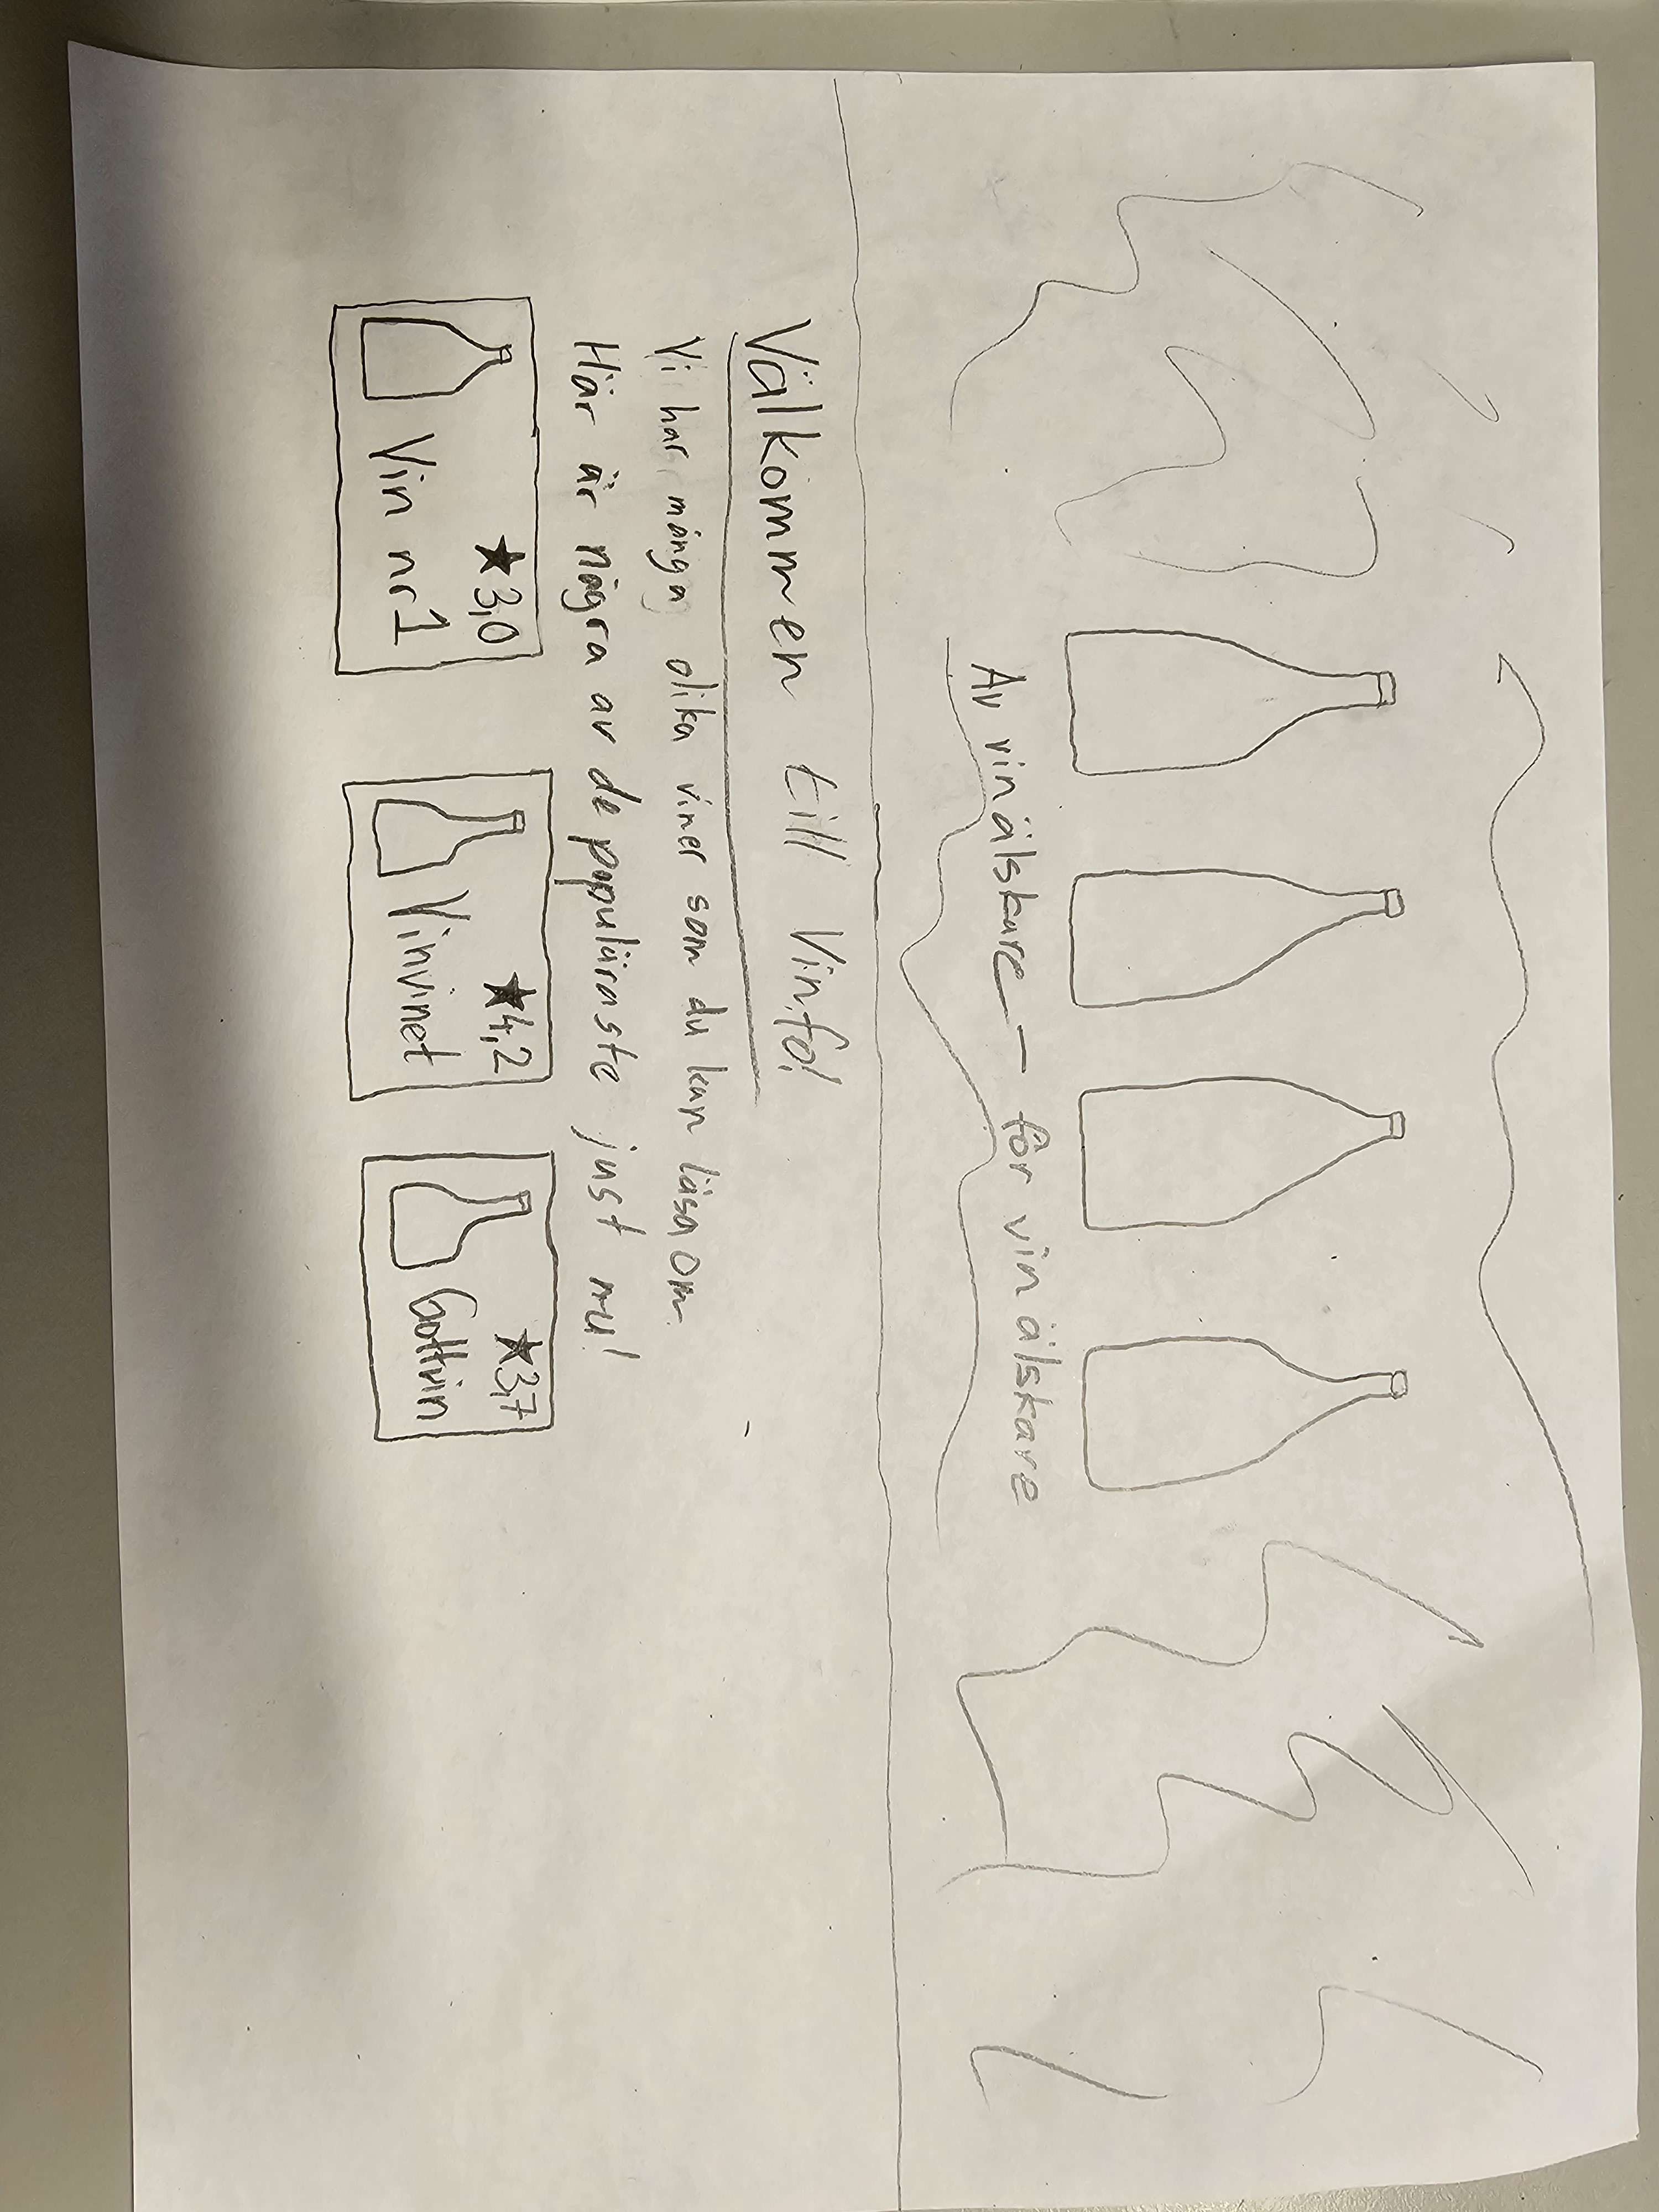 Av vinälskare – för vin älskare
Välkommen till Vinfo!
Vi har många olika viner som du kan läsa om.
Här är några av de populäraste just nu!
★3,0
Vin nr1
★4,2
Vinvinet
★3,7
Gottvin